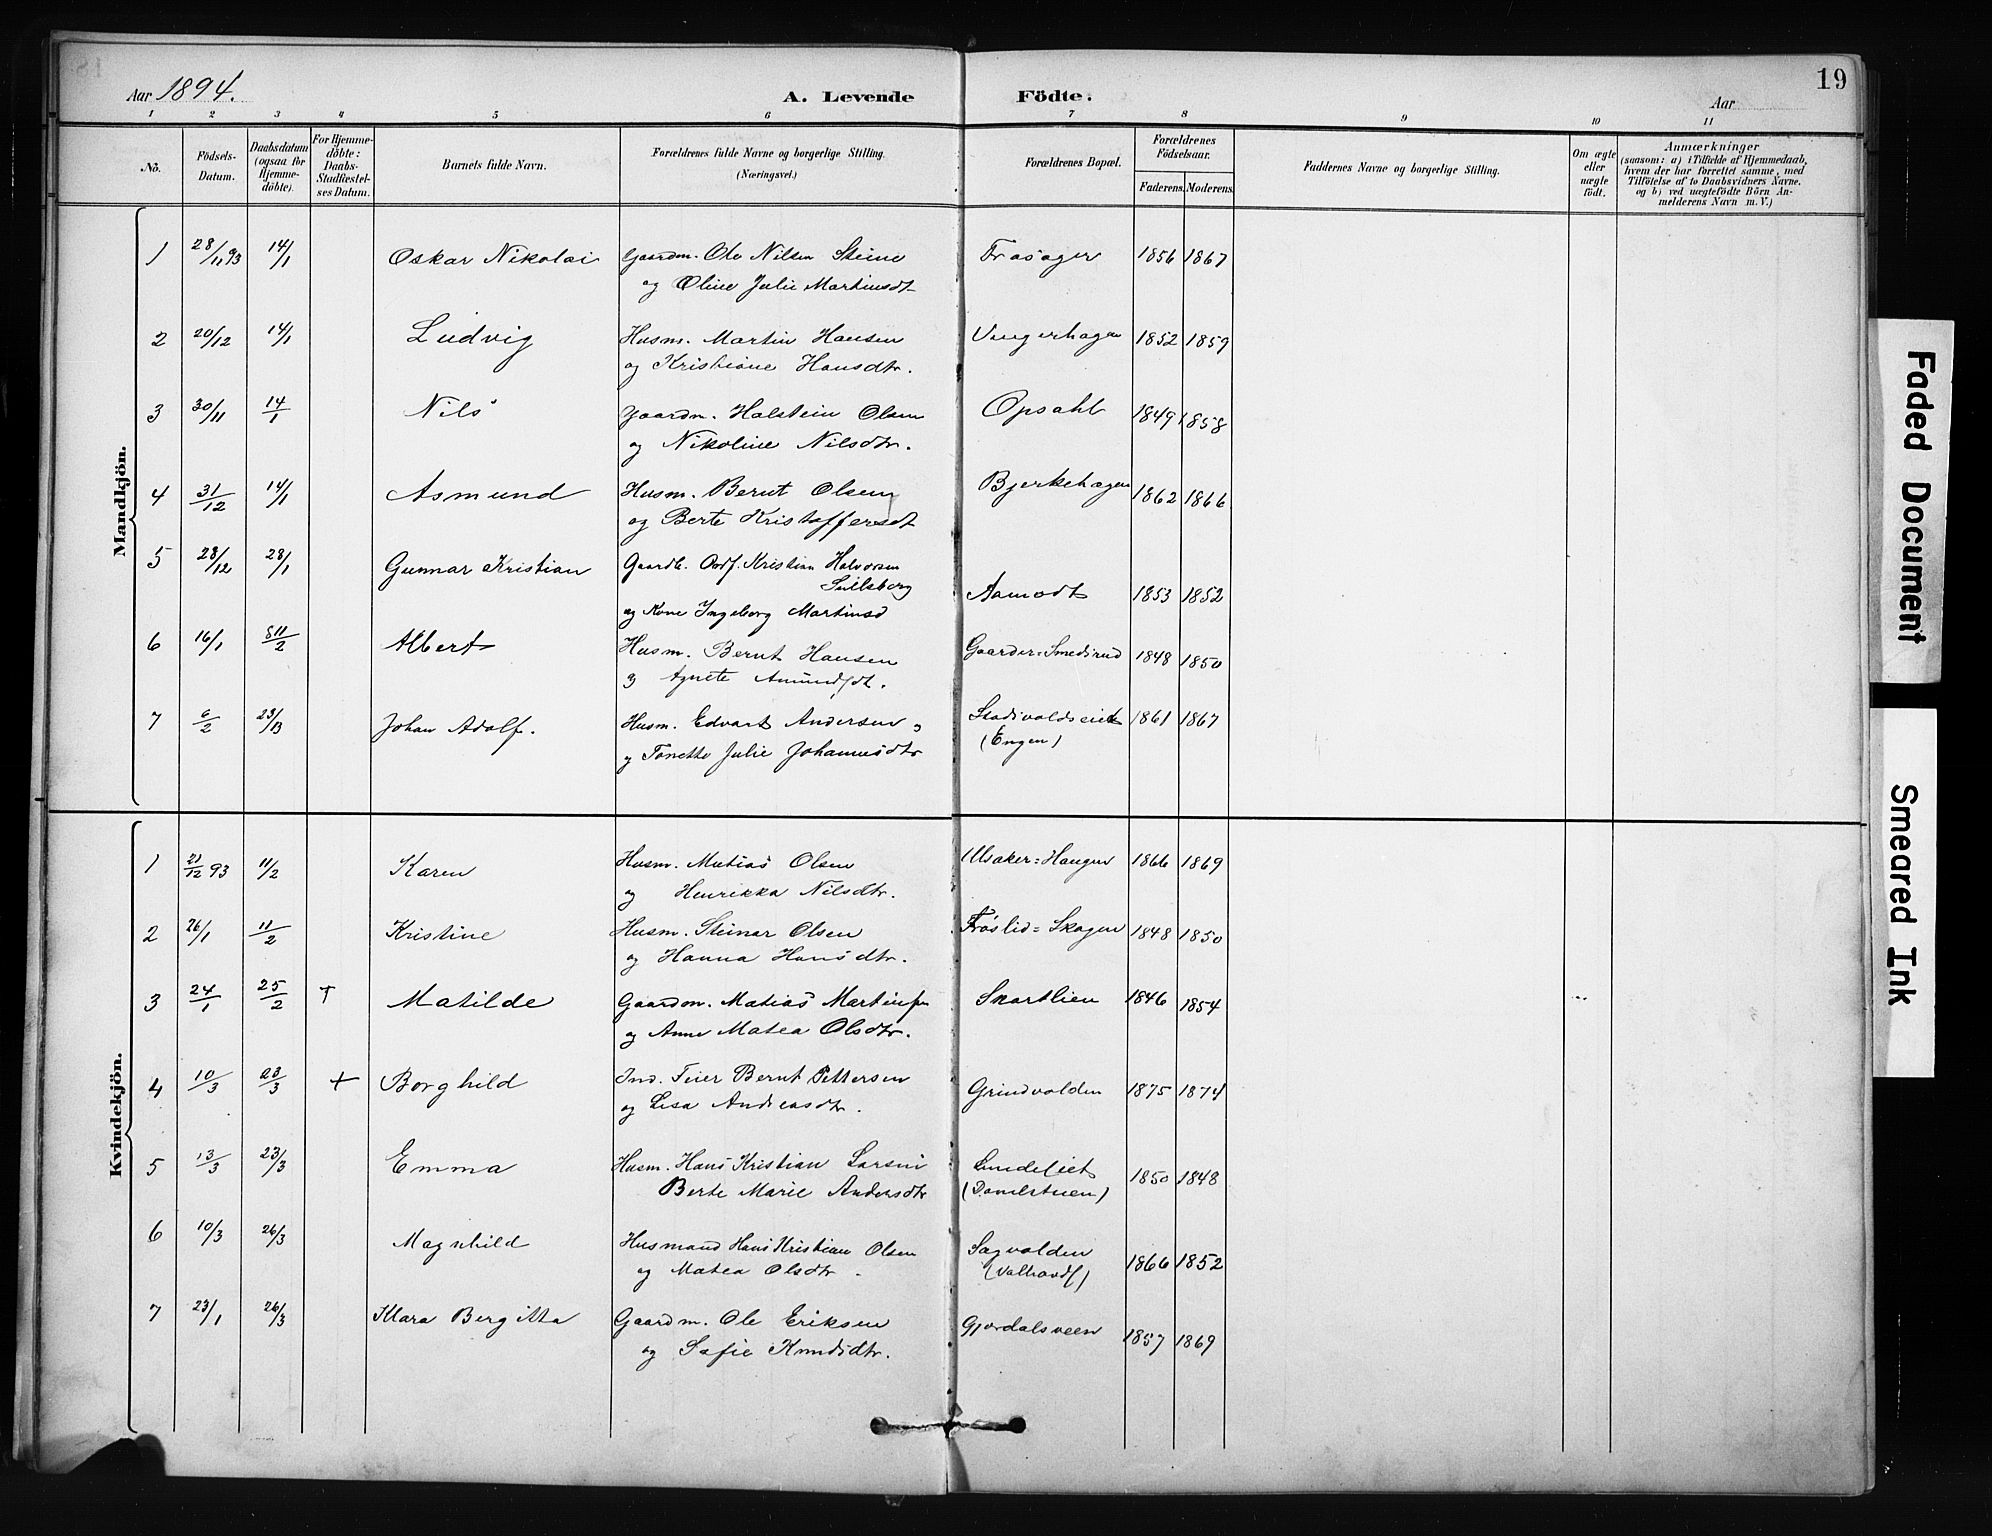 Aar 1894.
A. Levende Födte.
19
Aar
1 2 3 4 5 6 7 8 9 10 11
No.
Födsels-Datum.
Daabsdatum (ogsaa for Hjemme-döbte).
For Hjemme-döbte: Daabs-Stadfæstel-ses Datum.
Barnets fulde Navn.
Forældrenes fulde Navne og borgerlige Stilling. (Næringsvei.)
Forældrenes Bopæl.
Forældrenes Födselsaar.
Faderens. Moderens.
Faddernes Navne og borgerlige Stilling.
Om ægte eller uægte födt.
Anmærkninger
(saasom: a) i Tilfælde af Hjemmedaab,
hvem der har forrettet samme, med
Tilföielse af to Daabsvidners Navne.
og b) ved uægtefödte Börn An-
melderens Navn m. V.)
Mandkjön.
1 28/11 93 14/1 Oskar Nikolai Gaardm. Ole Nilsen Steine Frøsager 1856 1867
og Oline Julie Martinsdt
2 20/12 14/1 Ludvig Husm. Martin Hansen Ungerhagen 1852 1859
og Kristiane Hansdtr.
3 30/11 14/1 Nils Gaardm. Halstein Olsen Opsahl 1849 1858
og Nikoline Nilsdtr.
4 31/12 14/1 Asmund Husm. Bernt Olsen Bjerkehagen 1862 1866
og Berte Kristoffersdt
5 28/12 28/1 Gunnar Kristian Gaardb. Ordf. Kristian Halvorsen
Aamodt 1853 1852
og Kone Ingeborg Martinsd
6 16/1 11/2 Albert Husm. Bernt Hansen Gaarder=Smedsrud 1848 1850
og Agnete Amundsdt.
7 6/2 23/3 Johan Adolf. Husm. Edvart Andersen 1861 1867
og Tonette Julie Johannesdtr (Engen)
Kvindekjön.
1 21/12 93 11/2 Karen Husm. Matias Olsen Ulsaker=Haugen 1866 1869
og Henrikka Nilsdtr.
2 26/1 11/2 Kristine Husm. Steinar Olsen Frøslid=Skogen 1848 1850
og Hanna Hansdtr.
3 24/1 25/2 + Matilde Gaardm. Matias Martinsen Snartlien 1846 1854
og Anne Matea Olsdtr.
4 10/3 23/3 + Borghild Ind. Feier Bernt Pettersen Grindvolden 1875 1874
og Lisa Andreasdtr.
5 13/3 23/3 Emma Husm. Hans Kristian Larsen 1850 1848
Berte Marie Andersdtr
6 10/3 26/3 Magnhild Husmand Hans Kristian Olsen Sagvolden 1866 1852
og Matea Olsdtr.
7 23/1 26/3 Klara Bergitta Gaardm. Ole Eriksen Gjordalsveen 1857 1869
og Sofie Knudsdtr.
Faded Document
Smeared Ink